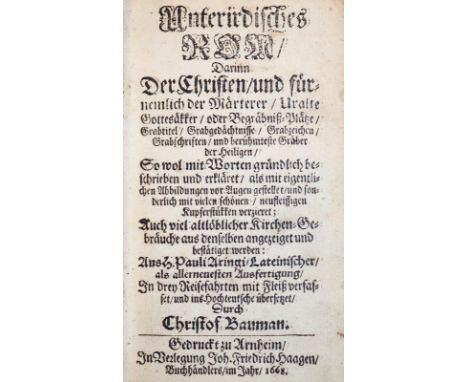 Unterirdisches
ROM/
Darinn
Der Christen/und für-
nemlich der Märterer/ Uralte
Gottesäkker/ oder Begräbniß-Plätze/
Grabtitel/ Grabgedächtnisse/ Grabzeichen/
Grabschriften/ und berühmteste Gräber
der Heiligen/
So wol mit Worten gründlich be-
schrieben und erkläret/ als mit eigentli-
chen Abbildungen vor Augen gestellet/und son-
derlich mit vielen schönen/ neufleissigen
Kupferstükken verzieret;
Auch viel altlöblicher Kirchen-Ge-
bräuche aus denselben angezeiget und
bestätiget werden:
Aus H. Pauli Aringi/ Lateinischer/
als allerneuesten Ausfertigung/
In drey Reisefahrten mit Fleiß verfas-
set/ und ins Hochteutsche übersetzet/
Durch
Christof Bauman.
Gedruckt zu Arnheim/
In Verlegung Joh. Friedrich Haagen/
Buchhändlers/im Jahr/ 1668.